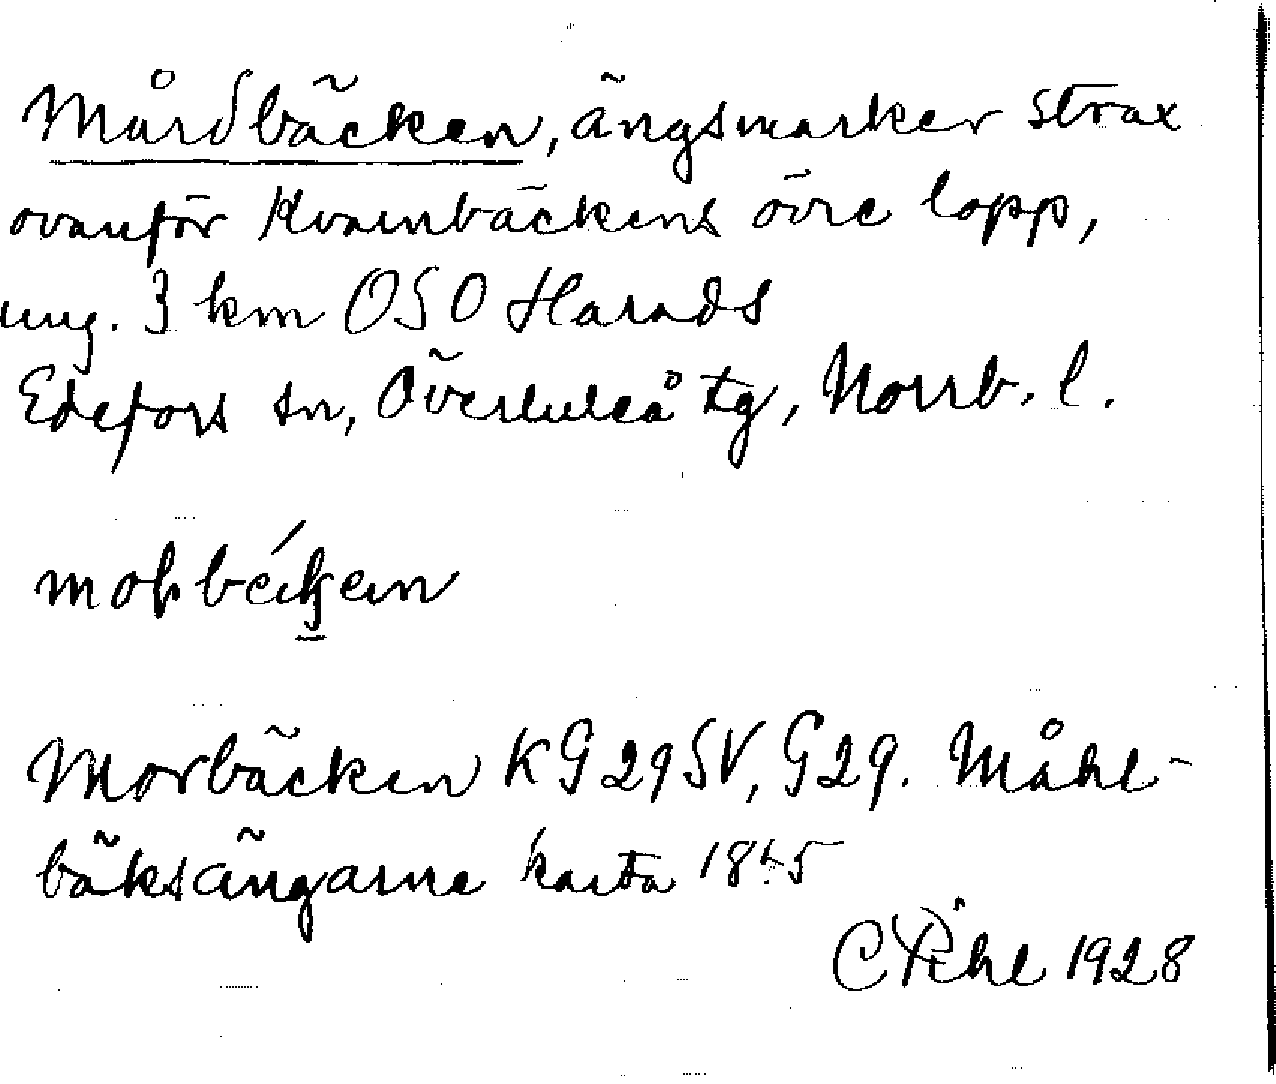 Mårdbäcken, ängsmarker strax
ovanför Kvarnbäckens övre lopp,
ung. 3 km OSO Harads
Edefors sn, Överluleå tg, Norrb. l.
Morbäcken KG 29 SV, G 29. Måhl-
bäksängarne karta
C Pihl 1928